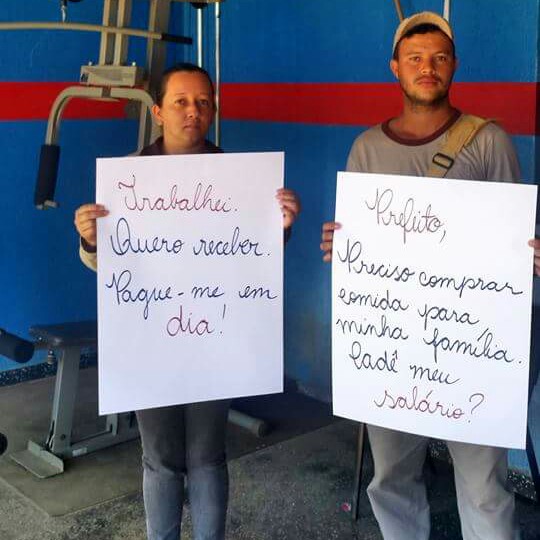 Trabalhei.
Quero receber.
Pague-me em
dia!
Prefeito,
Preciso comprar
comida para
minha família.
Cadê meu
salário?